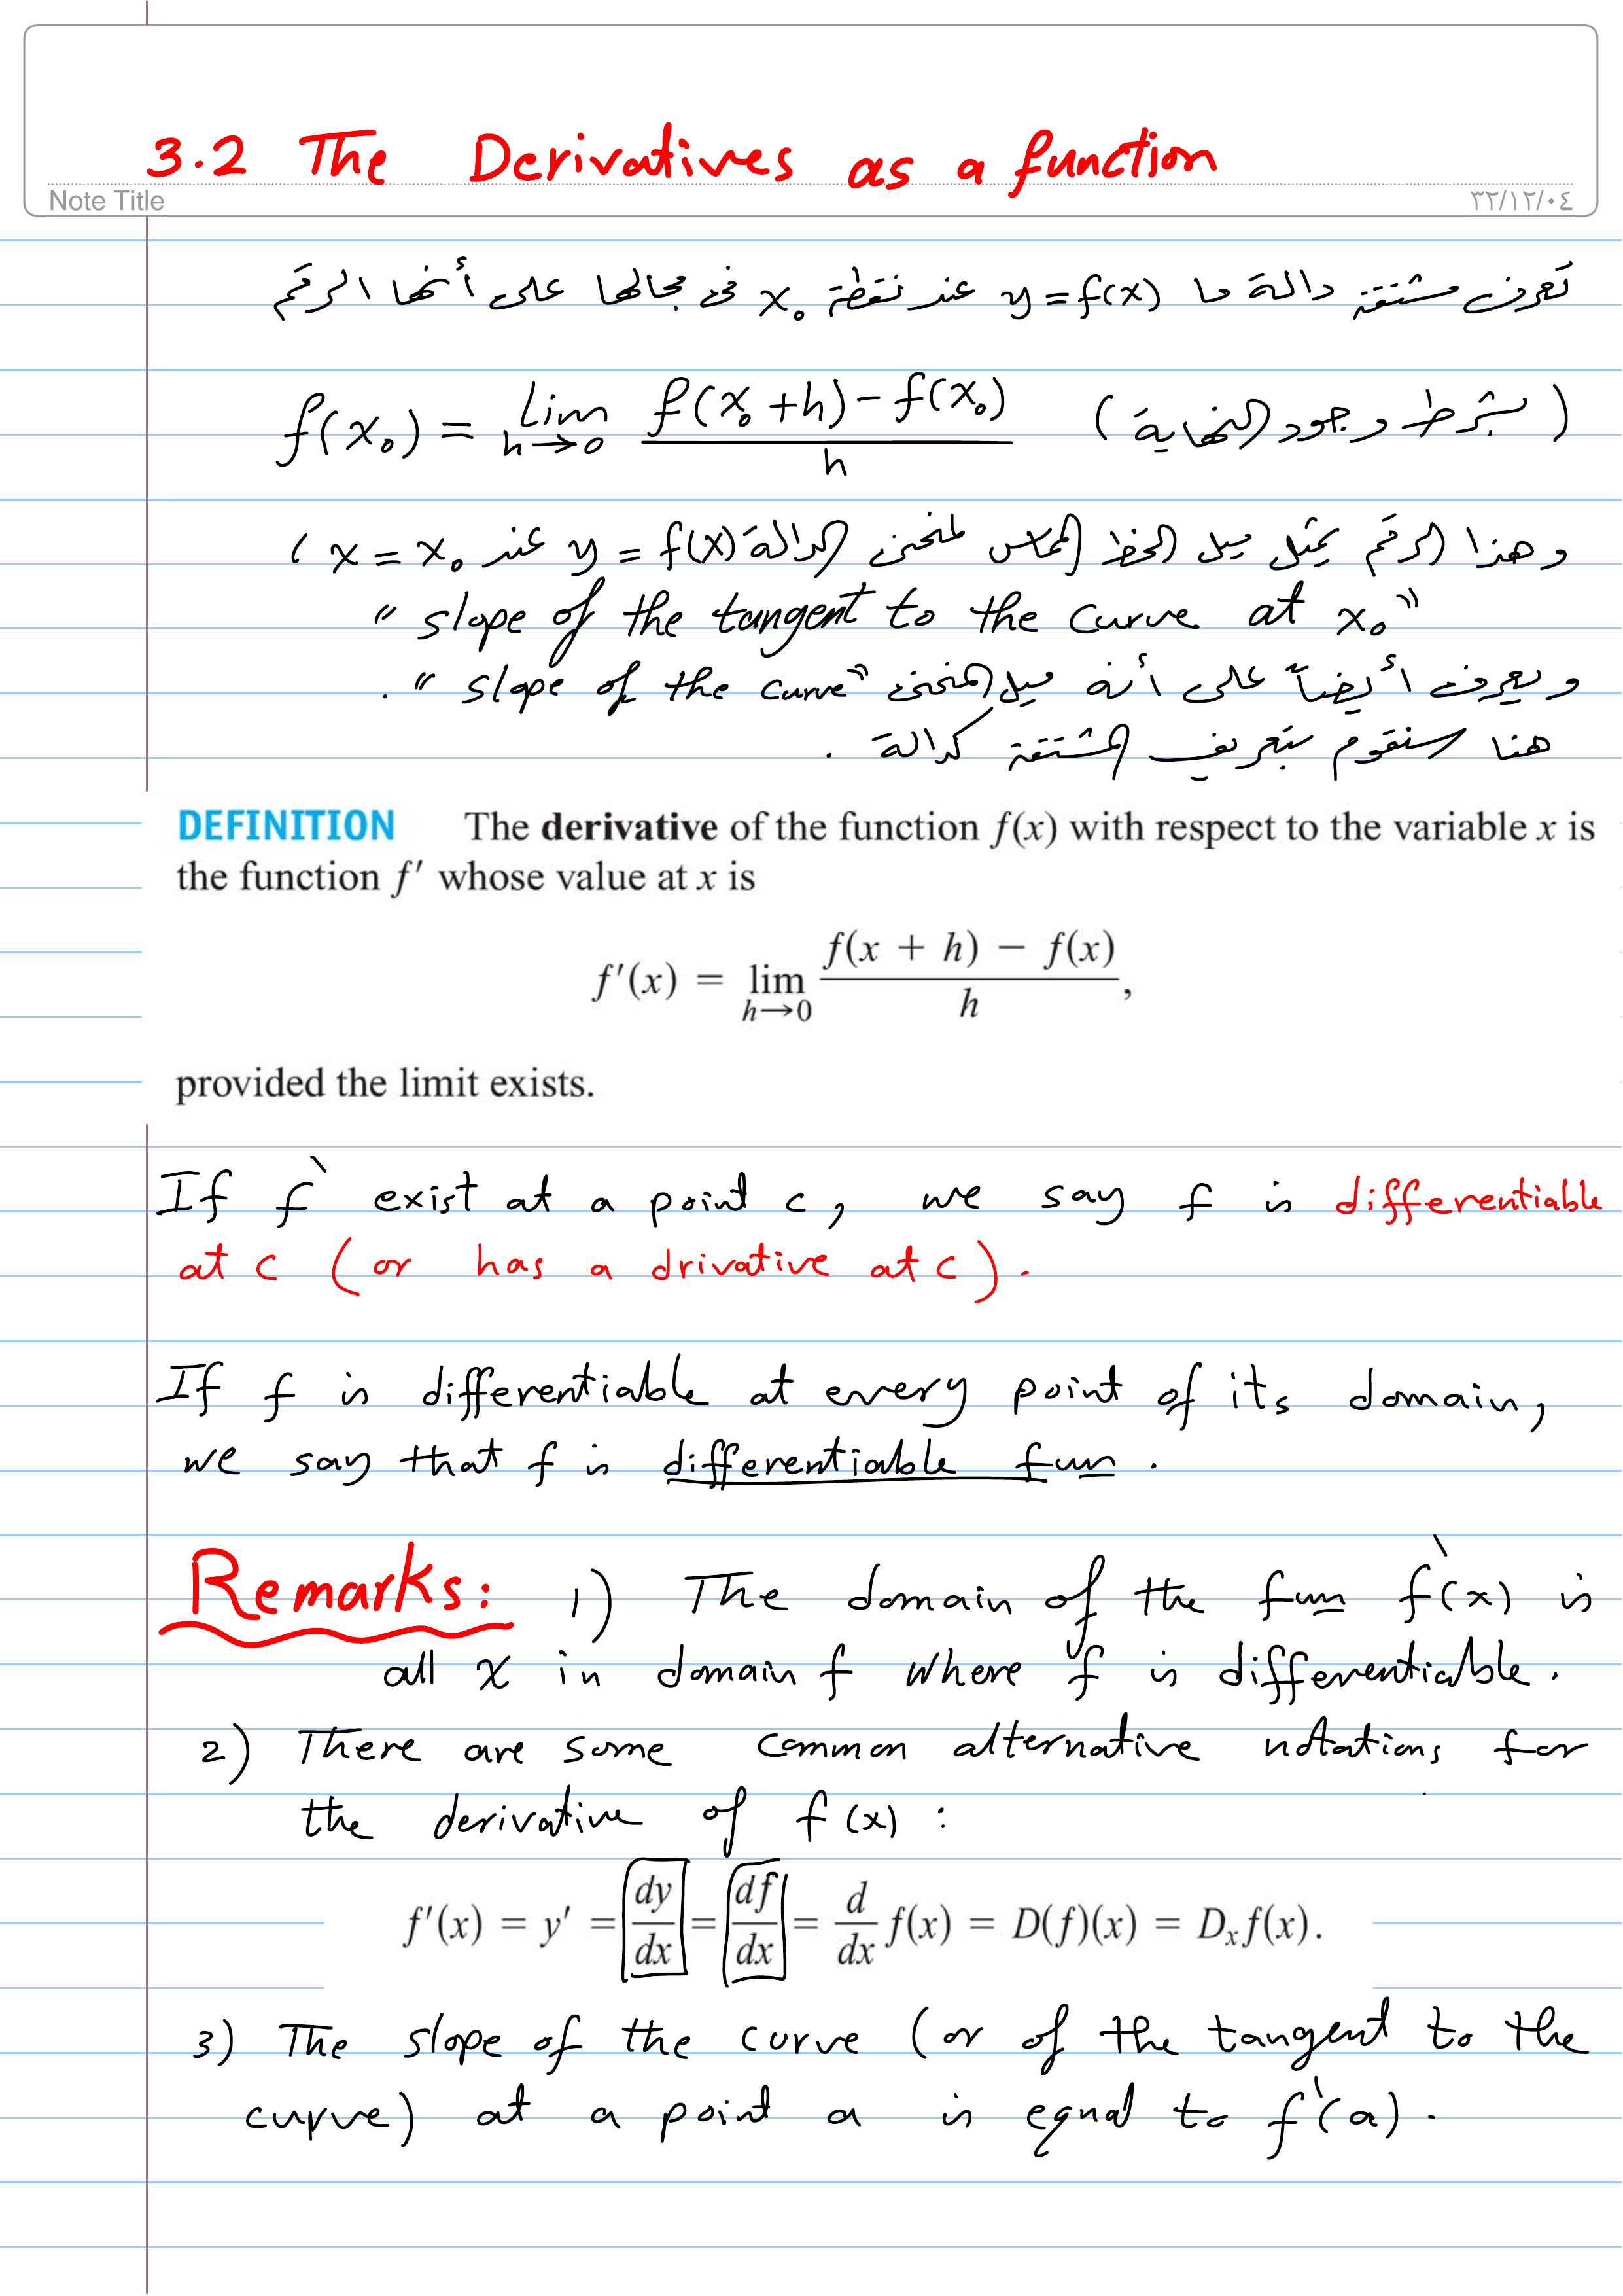 3.2 The Derivatives as a function
Note Title
٣٢/١٢/٠٤
تعرف مشتقة دالة ما y = f(x) عند نقطة x₀ في مجالها على أنها الرقم
f(x₀) = lim h→0 f(x₀+h) - f(x₀) / h (بشرط وجود النهاية)
وهذا الرقم يمثل ميل الخط المماس لمنحنى الدالة y = f(x) عند x = x₀ (
" slope of the tangent to the curve at x₀ "
ويعرف أيضاً على أنه ميل المنحنى " slope of the curve " .
هنا سنقوم بتعريف المشتقة كدالة .
DEFINITION The derivative of the function f(x) with respect to the variable x is
the function f′ whose value at x is
f′(x) = lim h→0 f(x + h) − f(x) / h,
provided the limit exists.
If f` exist at a point c, we say f is differentiable
at c (or has a drivative at c).
If f is differentiable at every point of its domain,
we say that f is differentiable fun .
Remarks: 1) The domain of the fun f`(x) is
all x in domain f where f is differentiable.
2) There are some common alternative notations for
the derivative of f(x) :
f′(x) = y′ = dy/dx = df/dx = d/dx f(x) = D(f)(x) = Dₓ f(x).
3) The slope of the curve (or of the tangent to the
curve) at a point a is equal to f`(a) .